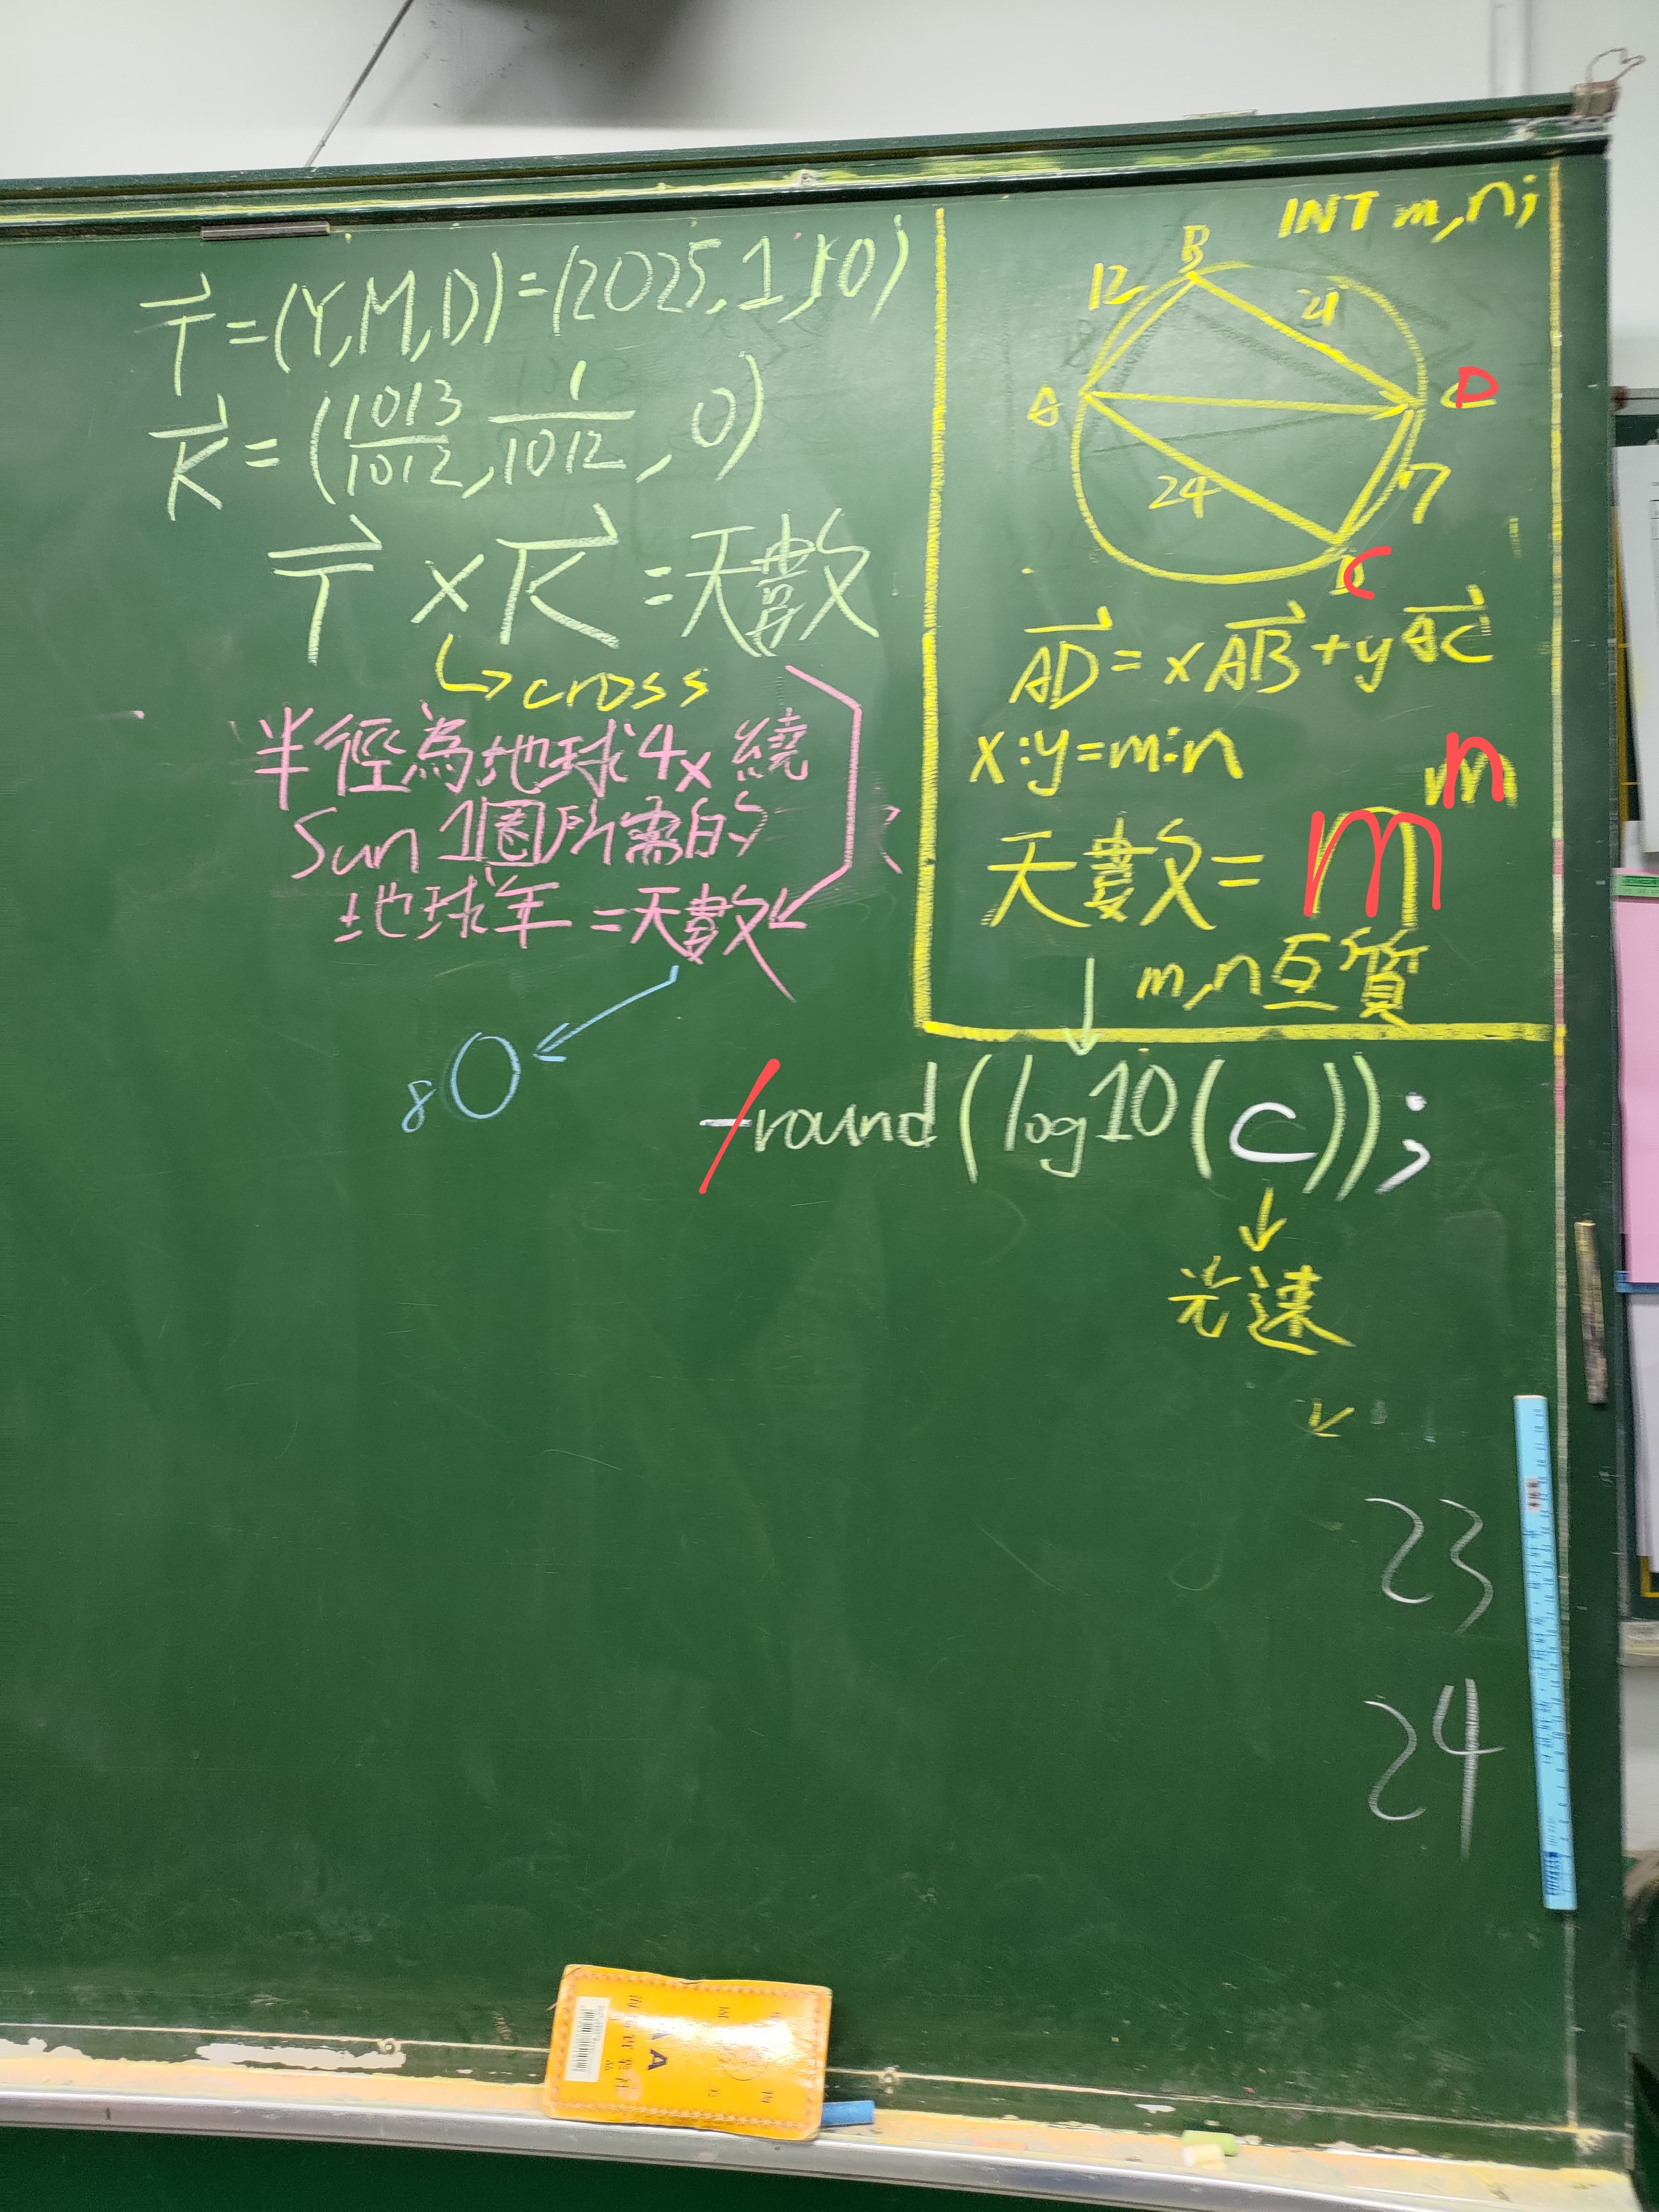 T = (Y,M,D) = (2025,1,10)
K = (1013/1012, 1/1012, 0)
T × K = 天數
cross
半徑為地球4x繞
Sun 1圈所需的
地球年 = 天數
80
INT m,n;
B
12
21
A
D
24
7
C
AD = xAB + yAC
x:y=m:n
天數 = m^n
m,n互質
round(log10(C));
光速
23
24